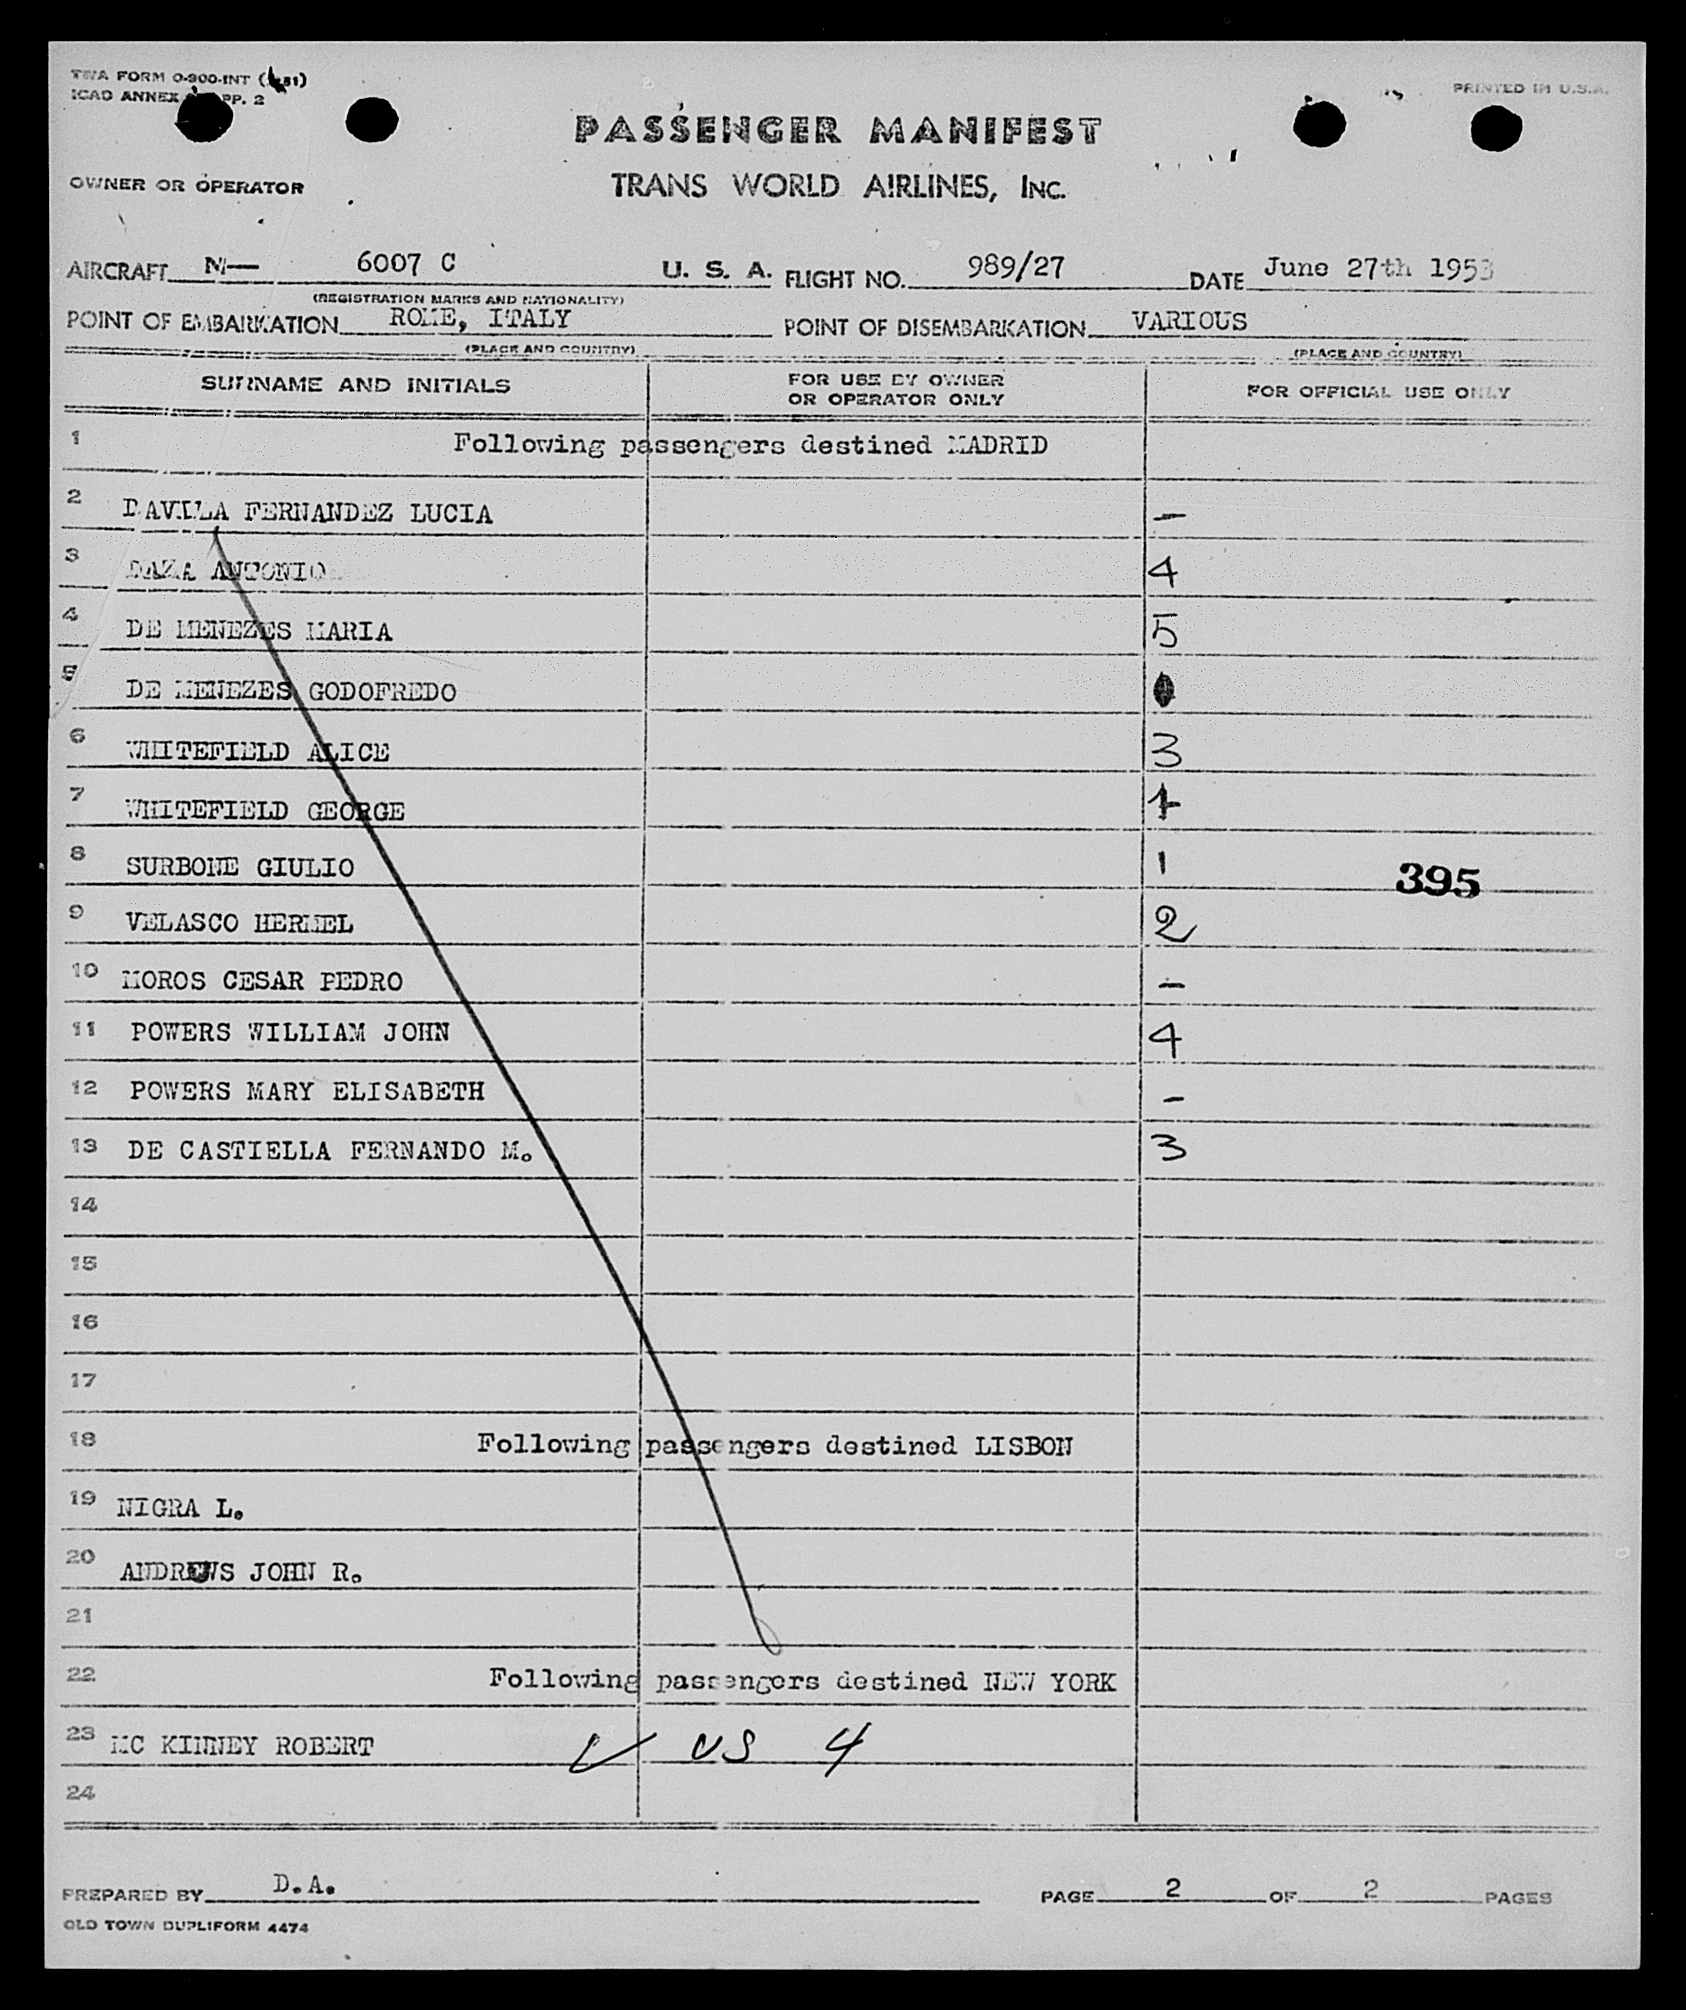 TWA FORM O-900-INT
ICAO ANNEX PP. 2
PRINTED IN U.S.A.
PASSENGER MANIFEST
OWNER OR OPERATOR
TRANS WORLD AIRLINES, INC.
AIRCRAFT N— 6007 C U. S. A. FLIGHT NO. 989/27 DATE June 27th 1953
(REGISTRATION MARKS AND NATIONALITY)
POINT OF EMBARKATION ROME, ITALY POINT OF DISEMBARKATION VARIOUS
(PLACE AND COUNTRY) (PLACE AND COUNTRY)
SURNAME AND INITIALS FOR USE BY OWNER OR OPERATOR ONLY FOR OFFICIAL USE ONLY
1 Following passengers destined MADRID
2 DAVILA FERNANDEZ LUCIA —
3 DAZA ANTONIO 4
4 DE MENEZES MARIA 5
5 DE MENEZES GODOFREDO
6 WHITEFIELD ALICE 3
7 WHITEFIELD GEORGE
8 SURBONE GIULIO 1 395
9 VELASCO HERMEL 2
10 MOROS CESAR PEDRO —
11 POWERS WILLIAM JOHN 4
12 POWERS MARY ELISABETH -
13 DE CASTIELLA FERNANDO M. 3
14
15
16
17
18 Following passengers destined LISBON
19 NIGRA L.
20 ANDREWS JOHN R.
21
22 Following passengers destined NEW YORK
23 MC KINNEY ROBERT ✓ US 4
24
PREPARED BY D.A. PAGE 2 OF 2 PAGES
OLD TOWN DUPLIFORM 4474